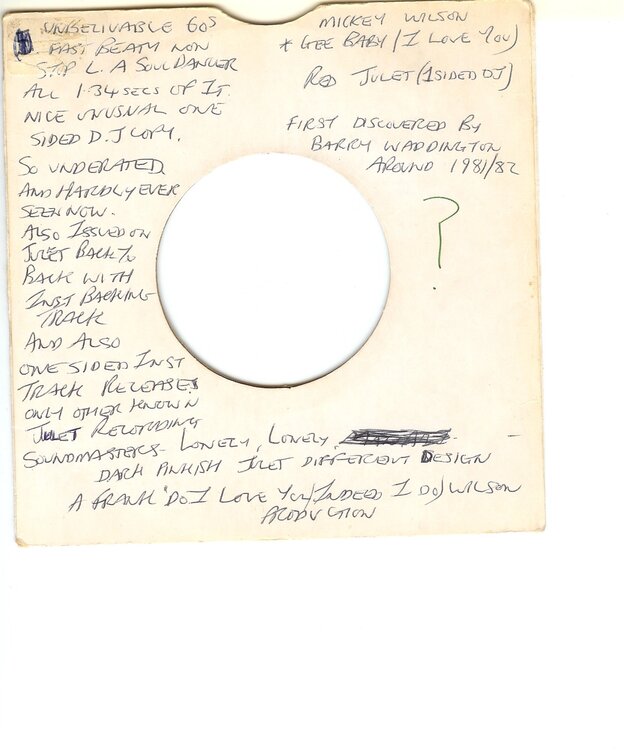 UNBELIVABLE 60S
FAST BEATY NON
STOP L.A SOUL DANCER
ALL 1.34 SECS OF IT.
NICE UNUSUAL ONE
SIDED D.J COPY.
SO UNDERATED
AND HARDLY EVER
SEEN NOW.
ALSO ISSUED ON
JULET BACK TO
BACK WITH
INST BACKING
TRACK
AND ALSO
ONE SIDED INST
TRACK RELEASE!
ONLY OTHER KNOWN
JULET RECORDING
SOUNDMASTERS - LONELY, LONELY,
DARK PINKISH JULET DIFFERENT DESIGN
A FRANK "DO I LOVE YOU (INDEED I DO) WILSON
PRODUCTION
MICKEY WILSON
* GEE BABY (I LOVE YOU)
RED JULET (1 SIDED DJ)
FIRST DISCOVERED BY
BARRY WADDINGTON
AROUND 1981/82
?